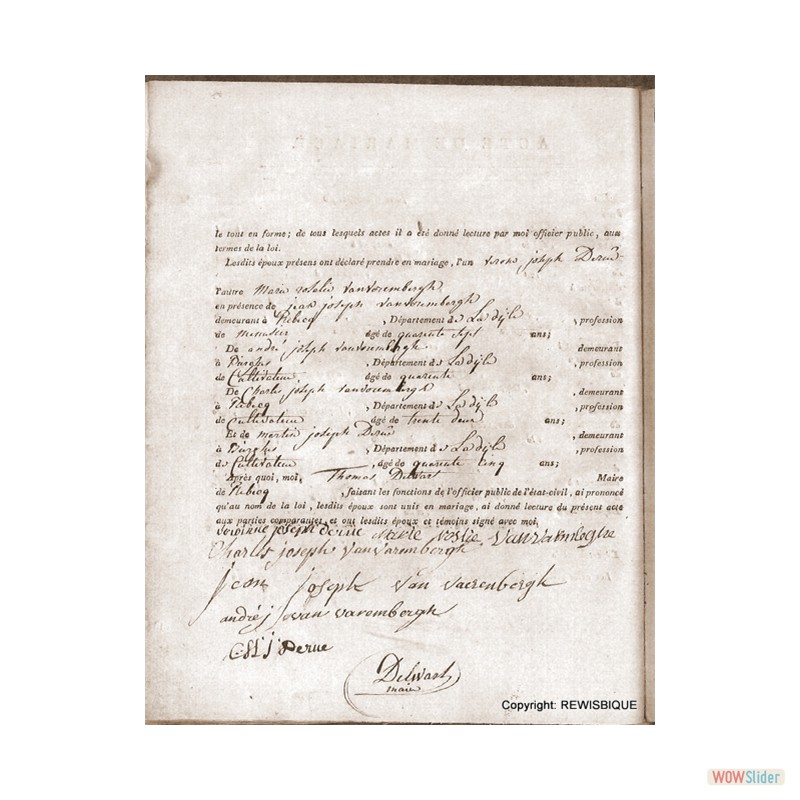 le tout en forme; de tous lesquels actes il a été donné lecture par moi officier public, aux
termes de la loi.
Lesdits époux présens ont déclaré prendre en mariage, l'un joseph Derue
l'autre Marie rosalie vanvarembergh
en présence de jean joseph vanvarembergh
demeurant à Rebecq , Département de La dÿle , profession
de menusier âgé de quarente sept ans;
De andré joseph vanvarembergh demeurant
à , Département de La dÿle , profession
de Cultivateur âgé de quarente ans;
De Charles joseph vanvarembergh , demeurant
à Rebecq , Département de La dÿle , profession
de Cultivateur âgé de trente deux ans;
Et de martin joseph Derue , demeurant
à , Département de La dÿle , profession
de Cultivateur , âgé de quarente cinq ans;
Après quoi, moi, Thomas Delwart Maire
de Rebecq , faisant les fonctions de l'officier public de l'état-civil, ai prononcé
qu'au nom de la loi, lesdits époux sont unis en mariage, ai donné lecture du présent acte
aux parties comparantes, et ont lesdits époux et témoins signé avec moi,
joseph derue Marie
Charles joseph vanvarembergh
jean joseph van vaerenbergh
andré j van varembergh
j Derue
Delwart
maire
Copyright: REWISBIQUE
WOWSlider